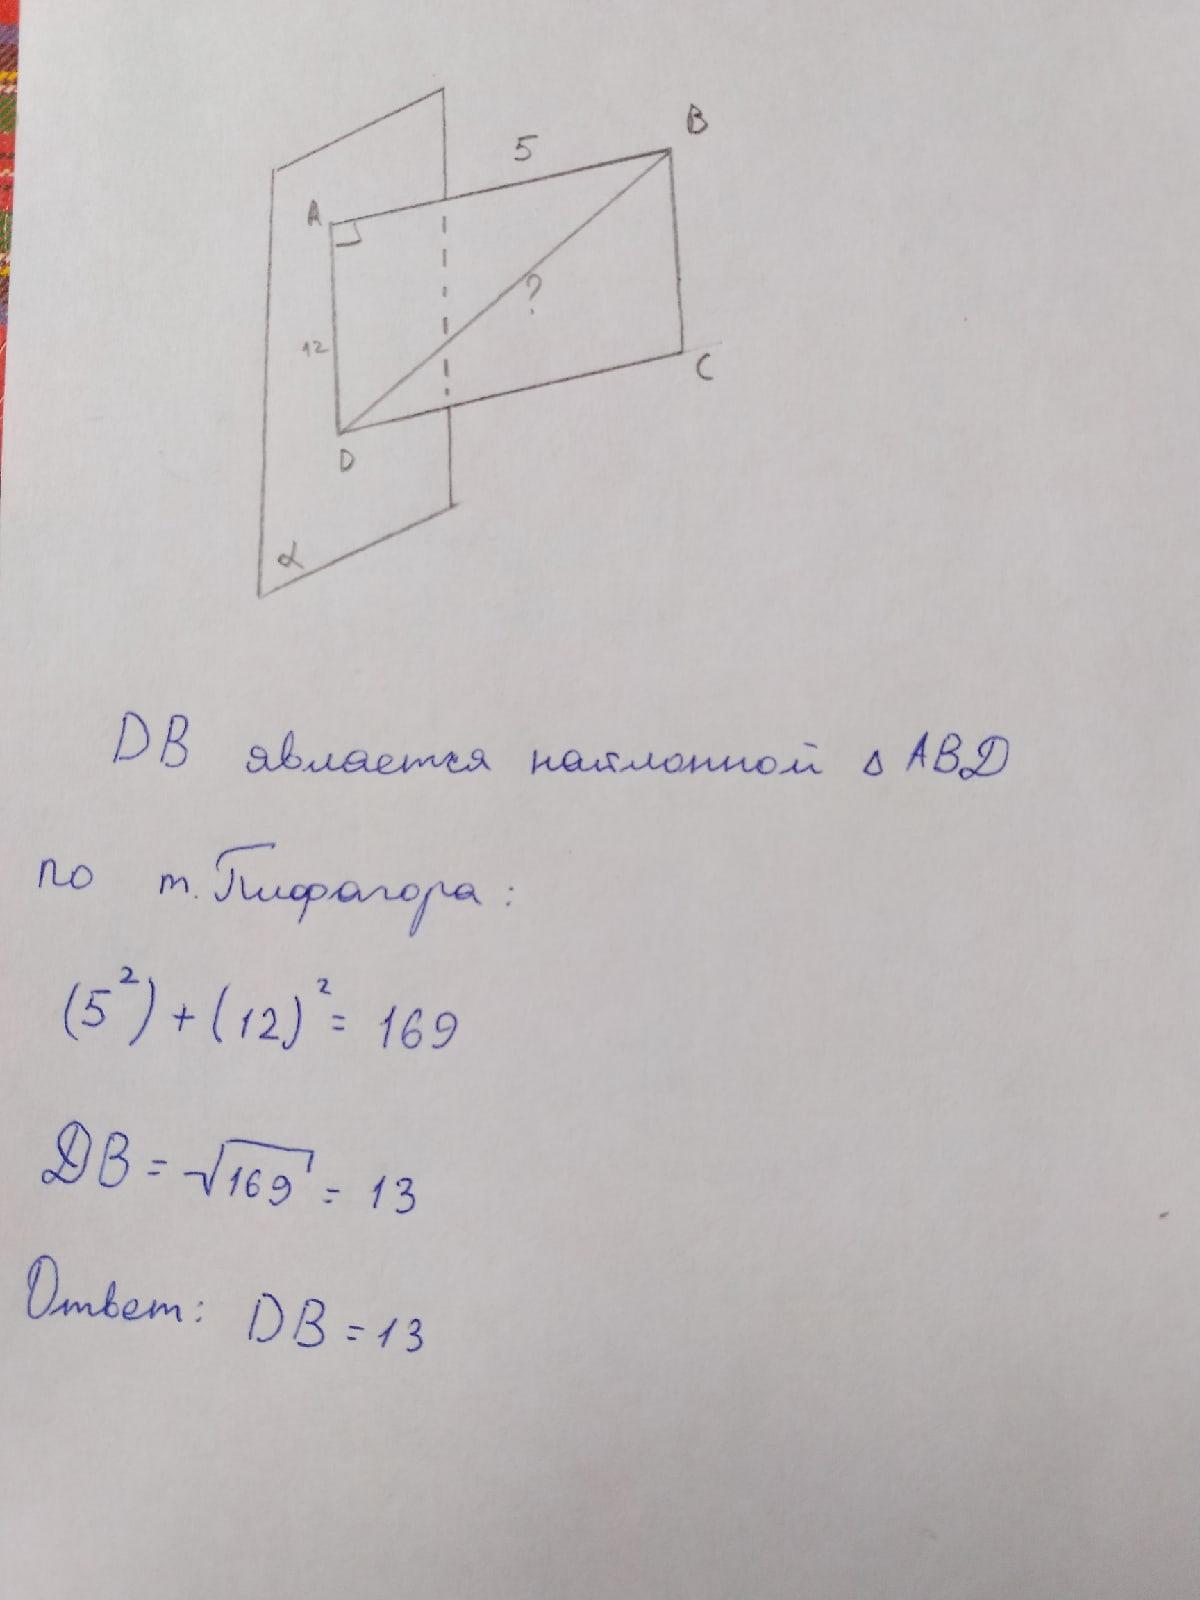 B
5
A
?
12
C
D
α
DB является наклонной △ ABD
по т. Пифагора:
(5²) + (12)² = 169
DB = √169 = 13
Ответ: DB = 13